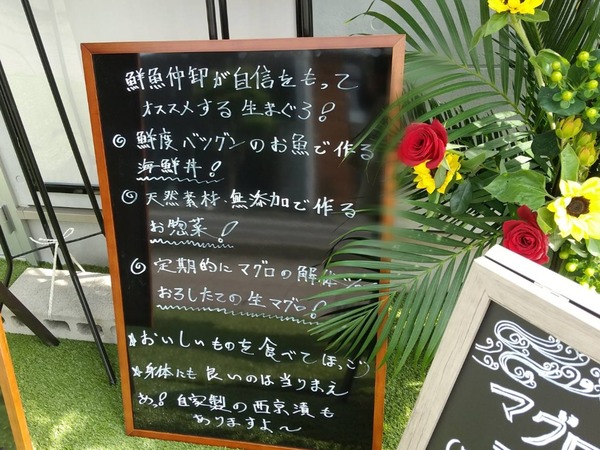 鮮魚仲卸が自信をもって
オススメする生まぐろ!
◎鮮度バツグンのお魚で作る
海鮮丼!
◎天然素材・無添加で作る
お惣菜!
◎定期的にマグロの解体
おろしたての生マグロ!
★おいしいものを食べてほっこり
★身体にも良いのは当りまえ
めっ!自家製の西京漬も
ありますよ〜
マグロ